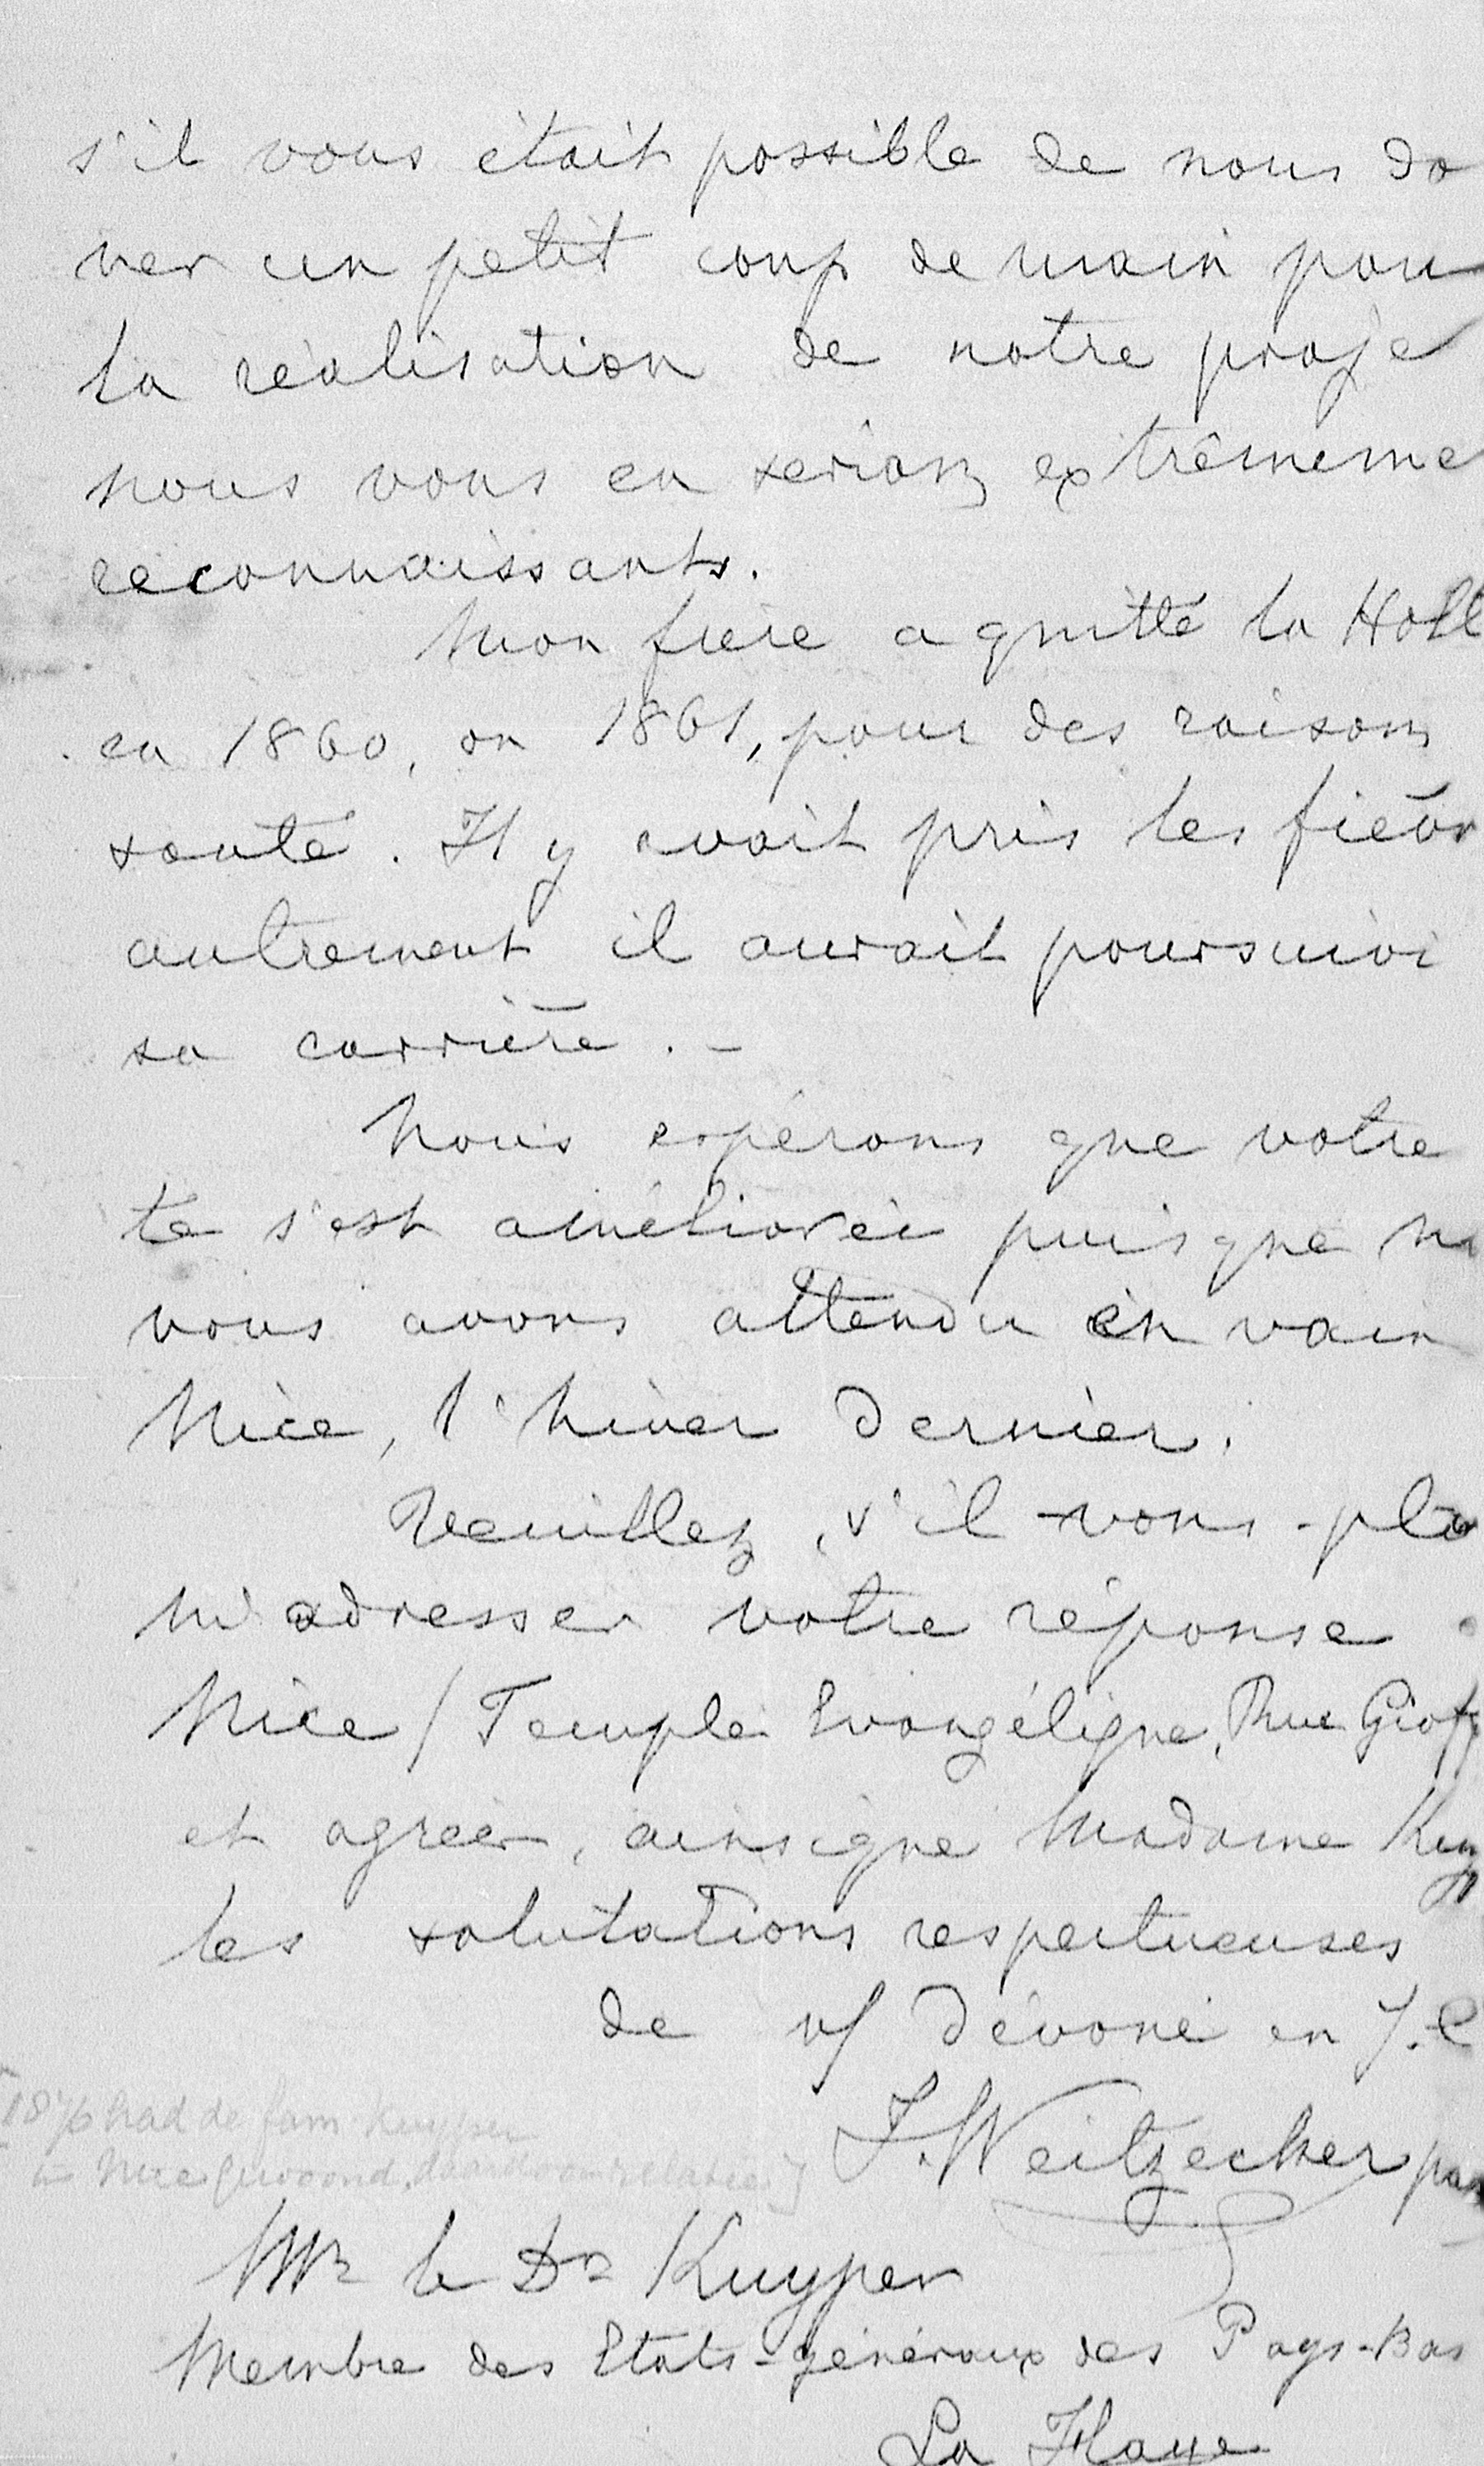 s'il vous était possible de nous do
ner un petit coup de main pou
la réalisation de notre proje
nous vous en serions extrêmeme
reconnaissants.
Mon frère a quitté la Holl
en 1860, ou 1861, pour des raisons
santé. Il y avait pris les fièvr
autrement il aurait poursuivi
sa carrière. -
Nous espérons que votre
té s'est améliorée puisque n
vous avons attendu en vain
Nice, l'hiver dernier.
Veuillez, s'il-vous-pla
m'adresser votre réponse
Nice / Temple Evangélique, Rue Giof
et agréer, ainsi que Madame Kuy
les salutations respectueuses
de v/ dévoué en J. C
J. Weitzecker pas
1876 had de fam. Kuyper
in Nice gewoond, daardoor
Mr le Dr Kuyper
Membre des Etats-généraux des Pays-Bas
La Haye